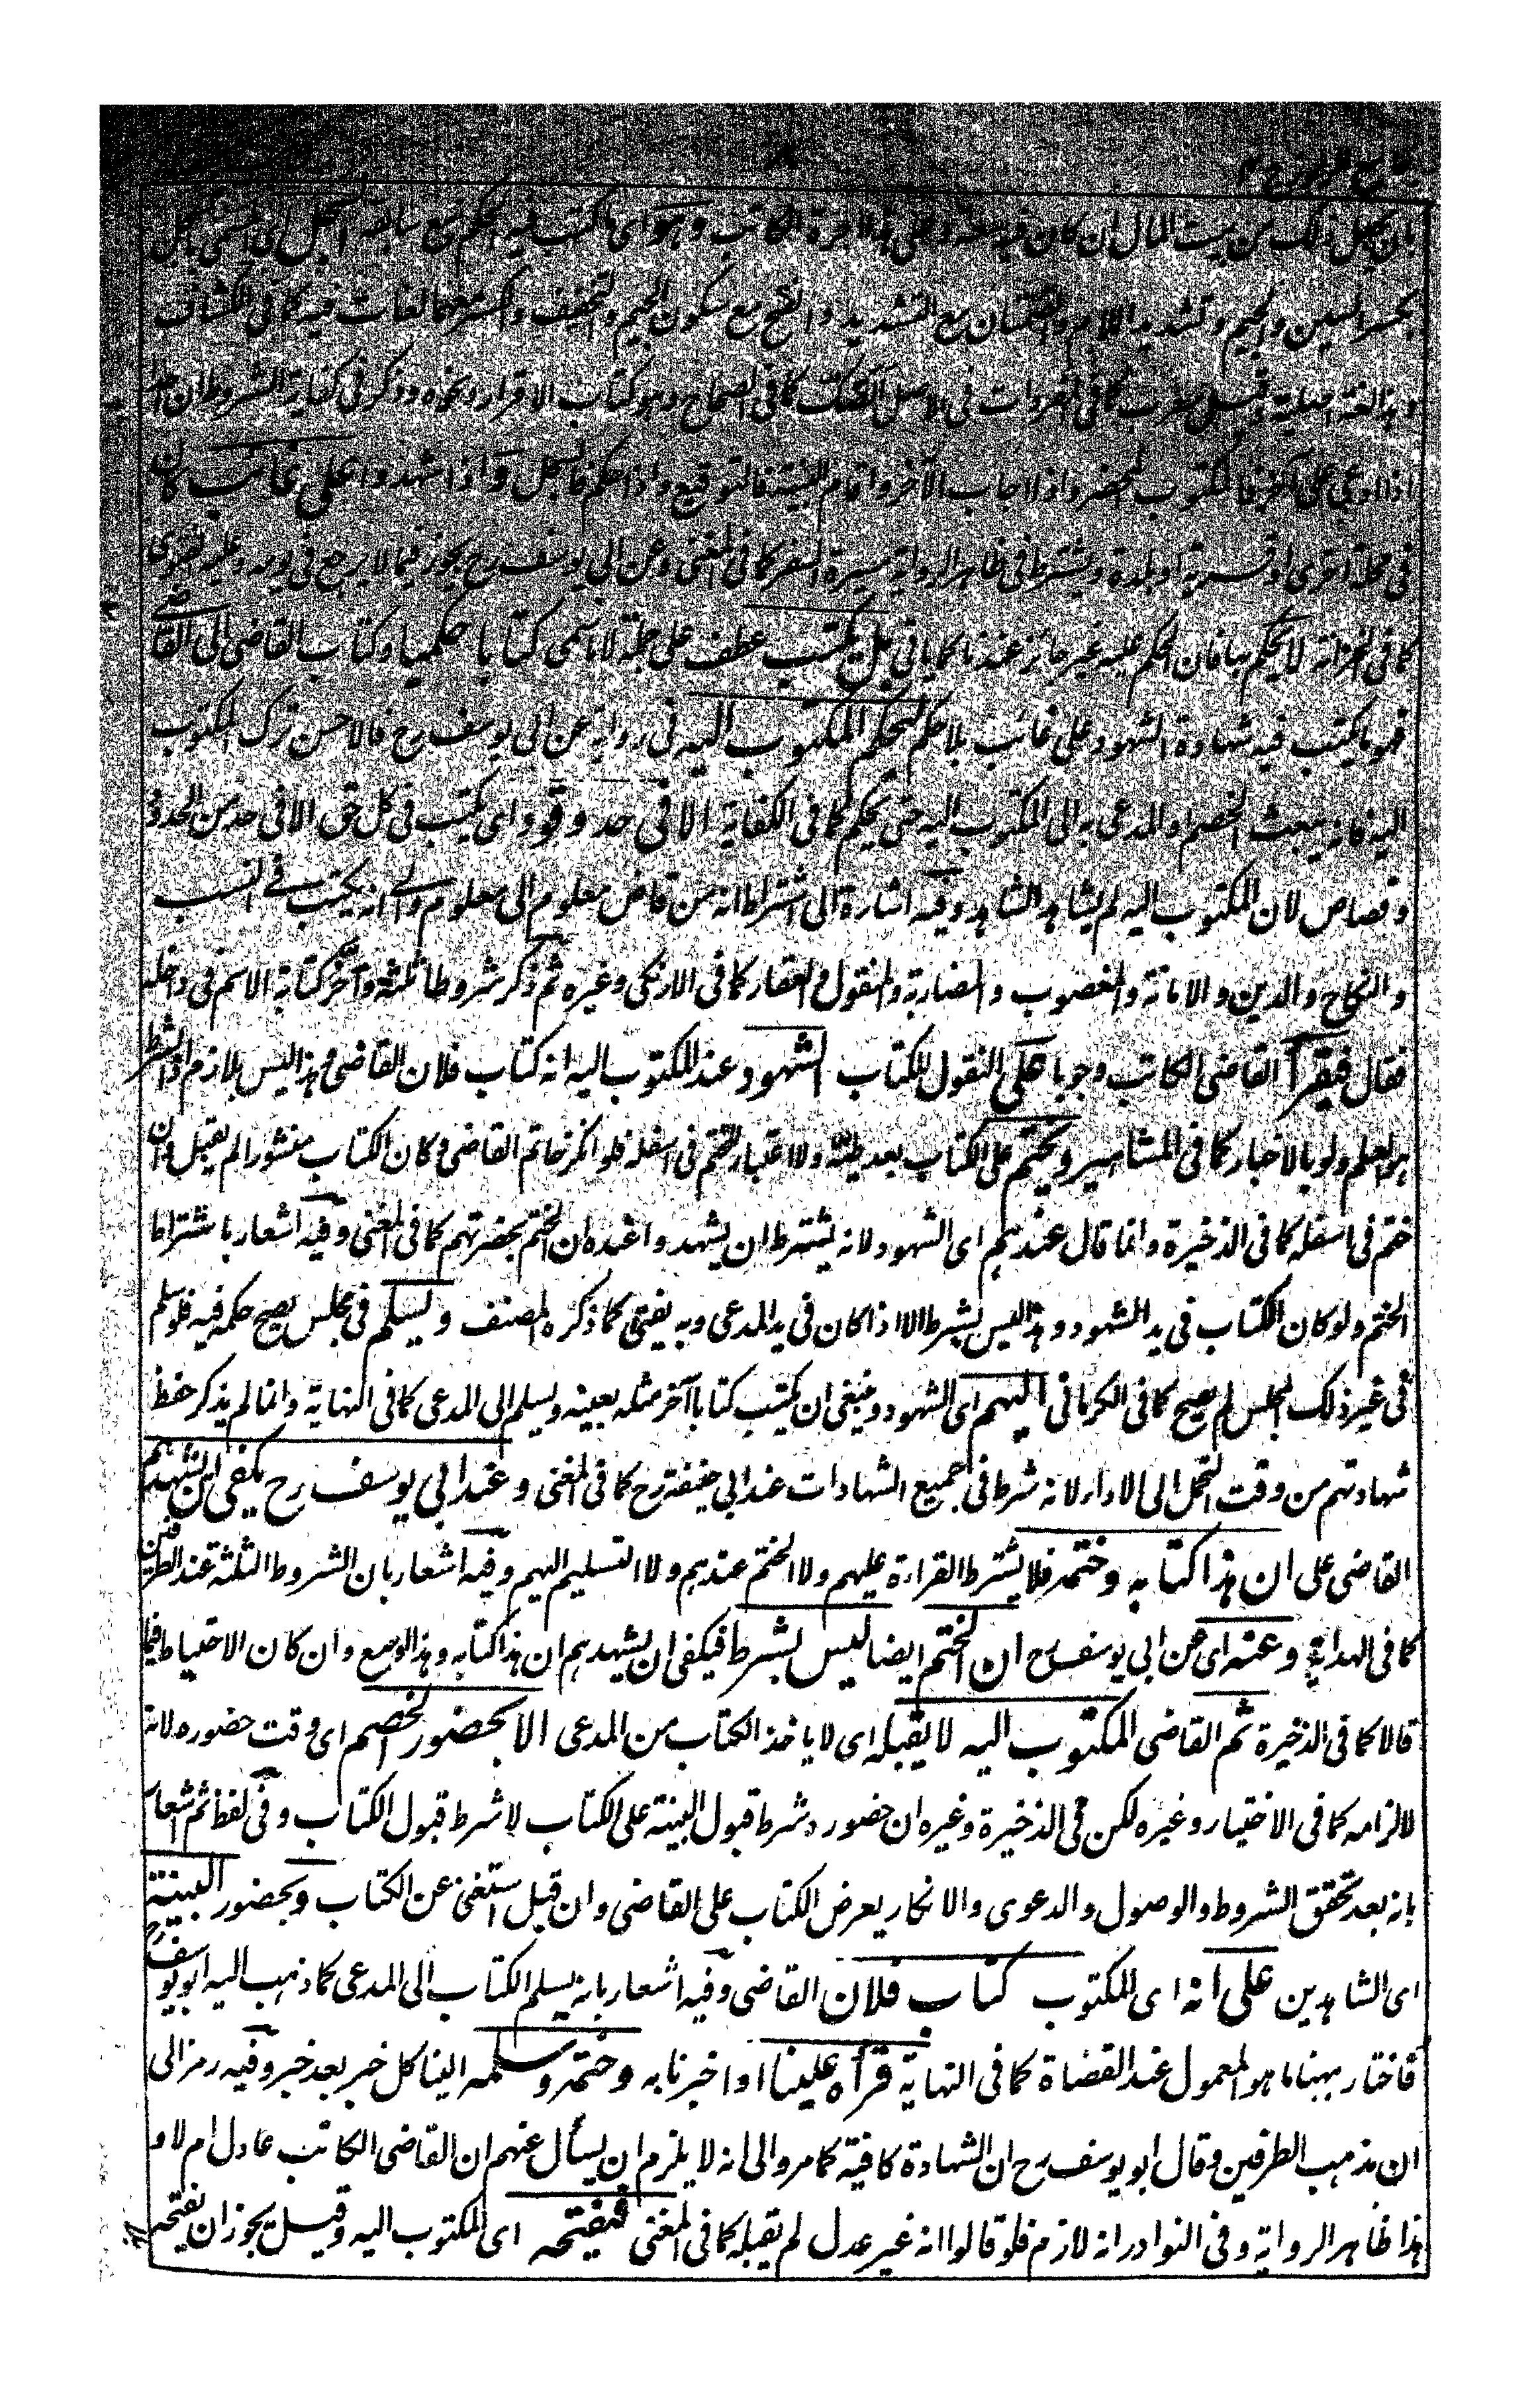 بان يجعل ذلك من بيت المال ان كان فيه سعة وعلى هذا اجرة الكاتب وهو اى ما كتب فيه الحكم مع سابقه السجل اى المسمى بالسجل
بكسر السين والجيم وتشديد اللام والضمتان مع التشديد والفتح مع سكون الجيم والتخفيف والكسر معهما لغات فيه كما فى الكشاف
وهذا لغة اصلية وقيل معرب كما فى المفردات فى الاصل الصك كما فى الصحاح وهو كتاب الاقرار ونحوه وذكر فى كفاية الشروط ان احدا
اذا ادعى على آخر فالمكتوب المحضر واذا اجاب الآخر واقام البينة فالتوقيع واذا حكم فالسجل واذا شهدوا على غائب كان
فى محلة اخرى او قرية او بلدة ويشترط فى ظاهر الرواية مسيرة السفر كما فى المغنى وعن ابى يوسف رح يجوز فيما لا يرجع فى يومه وعليه الفتوى
كما فى الخزانة لا يحكم بها فان الحكم عليه غير جائز عندنا كما ياتى بل يكتب عطف على جملة لا اسمى كتابا حكميا وكتاب القاضى الى القاضى
فهو ما يكتب فيه شهادة الشهود على غائب بلا حكم ليحكم المكتوب اليه فى رواية عن ابى يوسف رح فالاحسن ترك المكتوب
اليه فانه يبعث الخصم او المدعى به الى المكتوب اليه حتى يحكم كما فى الكفاية الا فى حد وقود اى يكتب فى كل حق الا فى حد من الحدود
وقصاص لان المكتوب اليه لم يشاهد الشاهد وفيه اشارة الى اشتراط انه من قاض معلوم الى معلوم والى انه يكتب فى النسب
والنكاح والدين والامانة والمغصوب والمضاربة والمنقول والعقار كما فى الارنكى وغيره ثم ذكر شروطا ثلثة وآخر كتابة الاسم فى داخله
فقال فيقرأ القاضى الكاتب وجوبا على المنقول للكتاب الشهود عند المكتوب اليه انه كتاب فلان القاضى وهذا ليس بلازم اذ الشرط
هو العلم ولو بالاخبار كما فى المشاهير ويختم على الكتاب بعد طيه ولا اعتبار للختم فى اسفله فلو انكر خاتم القاضى وكان الكتاب منشورا لم يقبل وان
ختم فى اسفله كما فى الذخيرة وانما قال عندهم اى الشهود لانه يشترط ان يشهدوا عنده ان الختم بحضرتهم كما فى المغنى وفيه اشعار باشتراط
الختم ولو كان الكتاب فى يد الشهود وهذا ليس بشرط الا اذا كان فى يد المدعى وبه يفتى كما ذكره المصنف ويسلم فى مجلس يصح حكمه فيه فلو سلم
فى غير ذلك المجلس لم يصح كما فى الكرمانى اليهم اى الشهود وينبغى ان يكتب كتابا آخر مثله بعينه ويسلم الى المدعى كما فى النهاية وانما لم يذكر حفظ
شهادتهم من وقت التحمل الى الاداء لانه شرط فى جميع الشهادات عند ابى حنيفة رح كما فى المغنى وعند ابى يوسف رح يكفى ان يشهدهم
القاضى على ان هذا كتابه وختمه فلا يشترط القراءة عليهم ولا الختم عندهم ولا التسليم اليهم وفيه اشعار بان الشروط الثلثة عند الطرفين
كما فى الهداية وعنه اى عن ابى يوسف رح ان الختم ايضا ليس بشرط فيكفى ان يشهدهم ان هذا كتابه وهذا اوسع وان كان الاحتياط فيما
قالا كما فى الذخيرة ثم القاضى المكتوب اليه لا يقبله اى لا ياخذ الكتاب من المدعى الا بحضور الخصم اى وقت حضوره لانه
لالزامه كما فى الاختيار وغيره لكن فى الذخيرة وغيره ان حضوره شرط قبول البينة على الكتاب لا شرط قبول الكتاب وفى لفظ ثم اشعار
بانه بعد تحقق الشروط والوصول والدعوى والانكار يعرض الكتاب على القاضى وان قبل استغنى عن الكتاب وبحضور البينة
اى الشاهدين على انه اى المكتوب كتاب فلان القاضى وفيه اشعار بانه يسلم الكتاب الى المدعى كما ذهب اليه ابو يوسف رح
فاختار ههنا ما هو المعمول عند القضاة كما فى النهاية قرأه علينا او اخبرنا به وختمه وسلمه الينا كل خبر بعد خبر وفيه رمز الى
ان مذهب الطرفين وقال ابو يوسف رح ان الشهادة كافية كما مر والى انه لا يلزم ان يسأل عنهم ان القاضى الكاتب عادل ام لا و
هذا ظاهر الرواية وفى النوادر انه لازم فلو قالوا انه غير عدل لم يقبله كما فى المغنى فيفتحه اى المكتوب اليه وقيل يجوز ان يفتحه